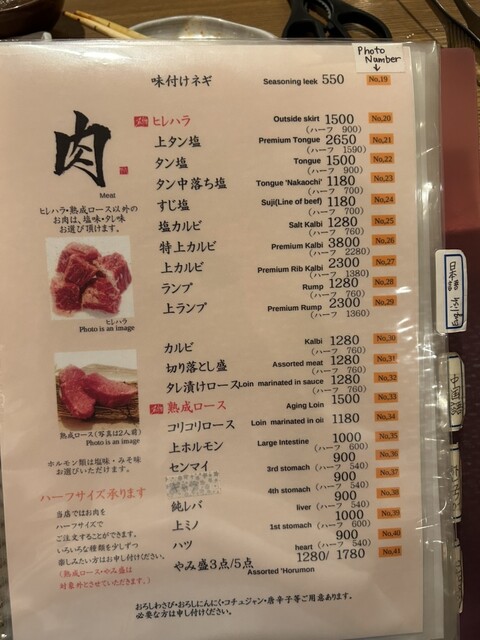 Photo
Number
↓
味付けネギ Seasoning leek 550 No,19
肉
Meat
ヒレハラ・熟成ロース以外の
お肉は、塩味・タレ味
お選び頂けます。
ヒレハラ
Photo is an image
熟成ロース(写真は2人前)
Photo is an image
ホルモン類は塩味・みそ味
お選びいただけます。
ハーフサイズ承ります
当店ではお肉を
ハーフサイズで
ご注文することができます。
いろいろな種類を少しずつ
楽しみたい方はお申し付けください。
(熟成ロース・やみ盛は
対象外とさせていただきます。)
ヒレハラ Outside skirt 1500 No,20
(ハーフ 900)
上タン塩 Premium Tongue 2650 No,21
(ハーフ 1590)
タン塩 Tongue 1500 No,22
(ハーフ 900)
タン中落ち塩 Tongue 'Nakaochi' 1180 No,23
(ハーフ 700)
すじ塩 Suji(Line of beef) 1180 No,24
(ハーフ 700)
塩カルビ Salt Kalbi 1280 No,25
(ハーフ 760)
特上カルビ Premium Kalbi 3800 No,26
(ハーフ 2280)
上カルビ Premium Rib Kalbi 2300 No,27
(ハーフ 1380)
ランプ Rump 1280 No,28
(ハーフ 760)
上ランプ Premium Rump 2300 No,29
(ハーフ 1360)
カルビ Kalbi 1280 No,30
(ハーフ 760)
切り落とし盛 Assorted meat 1280 No,31
(ハーフ 760)
タレ漬けロース Loin marinated in sauce 1280 No,32
(ハーフ 760)
熟成ロース Aging Loin 1500 No,33
コリコリロース Loin marinated in oil 1180 No,34
上ホルモン Large Intestine 1000 No,35
(ハーフ 600)
センマイ 3rd stomach 900 No,36
(ハーフ 540)
4th stomach 900 No,37
(ハーフ 540)
純レバ liver 900 No,38
(ハーフ 540)
上ミノ 1st stomach 1000 No,39
(ハーフ 600)
ハツ heart 900 No,40
(ハーフ 540)
やみ盛3点/5点 Assorted 'Horumon 1280/ 1780 No,41
おろしわさび・おろしにんにく・コチュジャン・唐辛子等ご用意あります。
必要な方は申し付けください。
日本
中国語